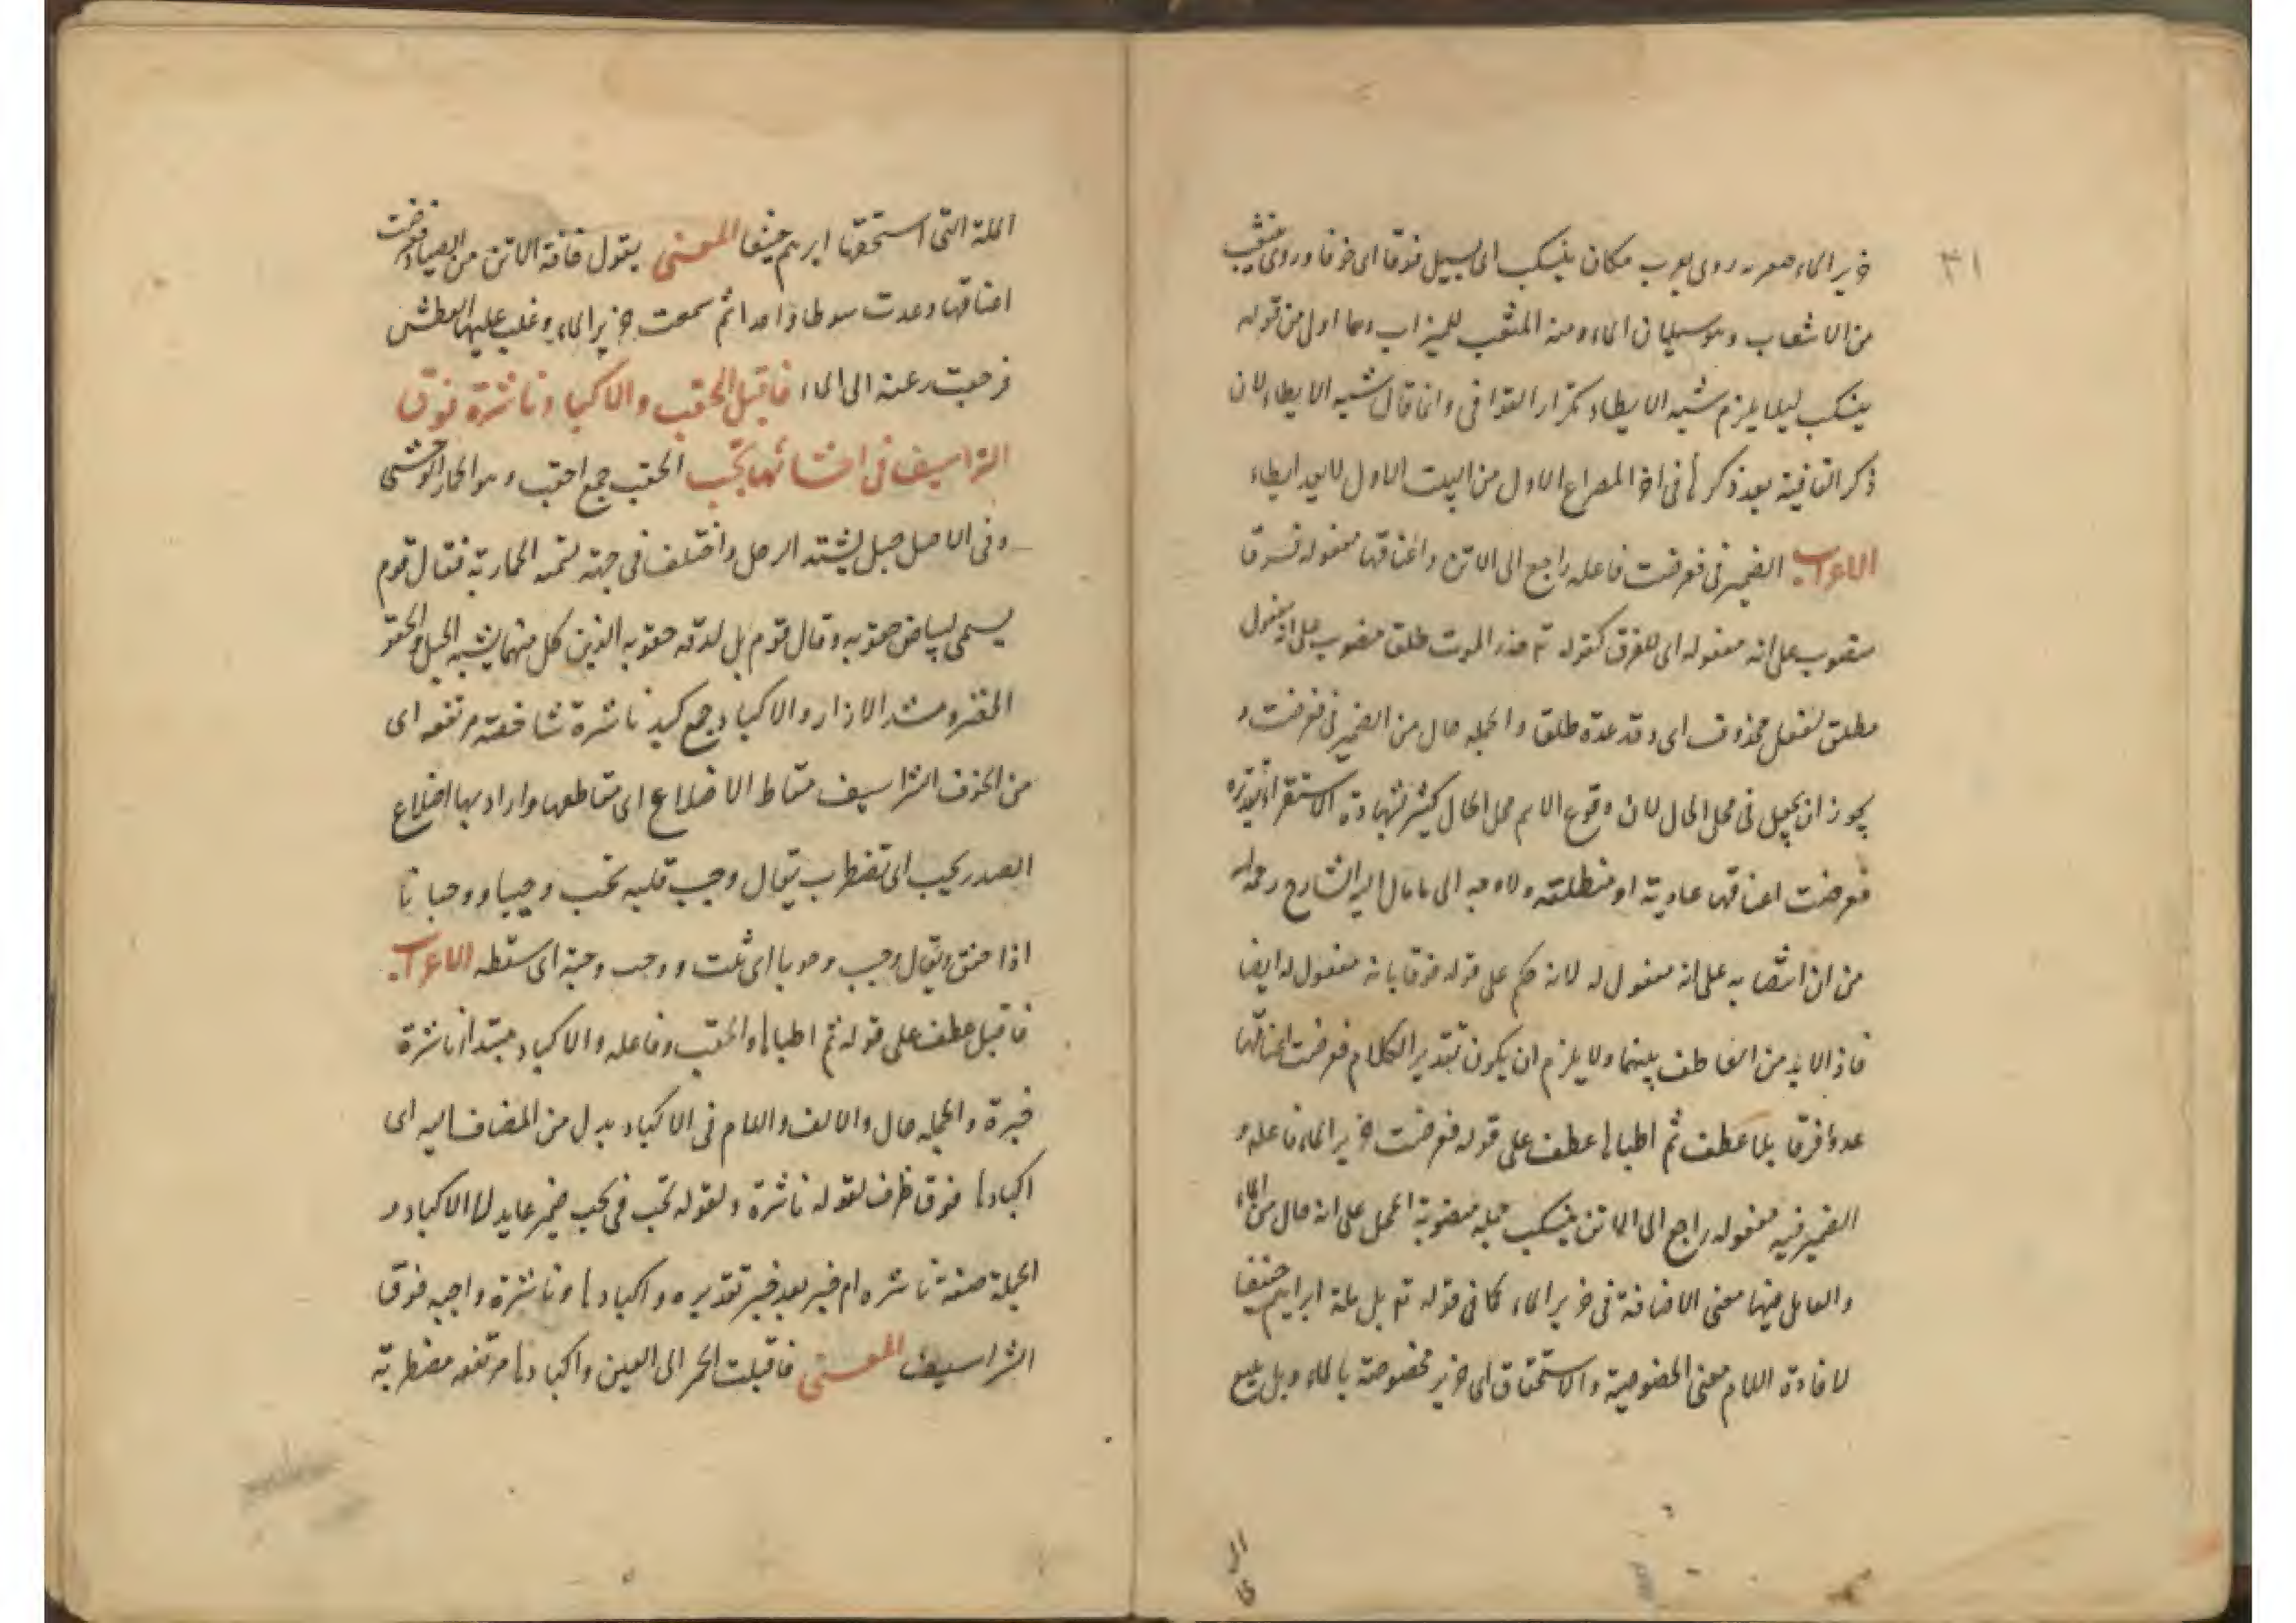 ٣١
خرير الماء صوته روى يعرب مكان ينسكب اى يسيل فرقا اى خوفا وروى ينثعب
من الاشعاب وهو سيلان الماء ومنه المثعب للميزاب وهما اولى من قوله
ينسكب ليلا يلزم شبه الايطاء تكرار القوافى وانما قال شبه الايطاء لان
ذكر القافية بعد ذكرها فى اخر المصراع الاول من البيت الاول لا يعد ايطاء
الاعراب الضمير فى فعرضت فاعله راجع الى الاتن واعناقها مفعوله فرقا
منصوب على انه مفعوله اى للفرق كقوله تع حذر الموت طلق منصوب على انه مفعول
مطلق لفعل محذوف اى وقد عدة طلقا والجمله حال من الضمير فى فعرضت و
يجوز ان يجعل فى محل الحال لان وقوع الاسم محل الحال كثير بشهادة الاستقراء تقديره
فعرضت اعناقها عادية او منطلقة ولا وجه الى ما مال اليه الشارح رحمه الله
من ان انتصابه على انه مفعول له لانه حكم على قوله فرقا بانه مفعول له ايضا
فاذا لا بد من العاطف بينهما ولا يلزم ان يكون تقدير الكلام فعرضت اعناقها
عدوا فرقا بلا عطف ثم اطباها عطف على قوله فعرضت خرير الماء فاعله و
الضمير فيه مفعوله راجع الى الاتن ينسكب جمله منصوبة المحل على انه حال من الماء
والعامل فيها معنى الاضافة فى خرير الماء كما فى قوله تع بل ملة ابراهيم حنيفا
لافادة اللام معنى الخصوصية والاستحقاق اى خرير مخصوصة بالماء وبل نتبع
الملة التى استحقها ابرهيم حنيفا المعنى يقول خافة الاتن من الصياد فعرضت
اعناقها وعدت سوطا واحدا ثم سمعت خرير الماء وغلب عليها العطش
فرجعت رعنه الى الماء فاقبل الحقب والاكباد ناشزة فوق
الشراسيف فى احشائها تجب الحقب جمع احقب وهو الحمار الوحشى
وفى الاصل حبل يشتد الرحل واختلف فى جهة تسمية الحمار به فقال قوم
يسمى لبياض حقويه وقال قوم بل لدقة حقويه الذين كل منهما يشبه الحبل والحقو
الخصر ومشد الازار والاكباد جمع كبد ناشزة شاخصة مرتفعه اى
من الخوف الشراسيف مقاط الاضلاع اى مقاطعها واراد بها اضلاع
الصدر يجب اى تضطرب يقال وجب قلبه تجب وجيبا ووجبانا
اذا خفق ويقال وجب وجوبا اى ثبت ووجب وجبة اى سقطه الاعراب
فاقبل عطف على قوله ثم اطباها والحقب وفاعله والاكباد مبتدا ناشزة
خبرة والجمله حال والالف واللام فى الاكباد بدل من المضاف اليه اى
اكبادها فوق ظرف لقوله ناشزة ولقوله تجب فى تجب ضمير عايد لها الاكباد و
الجملة صفة ناشزه ام خبر بعد خبر تقديره واكبادها وناشزة واجبه فوق
الشراسيف المعنى فاقبلت الحمر الى العين واكبادها مرتفعه مضطربة